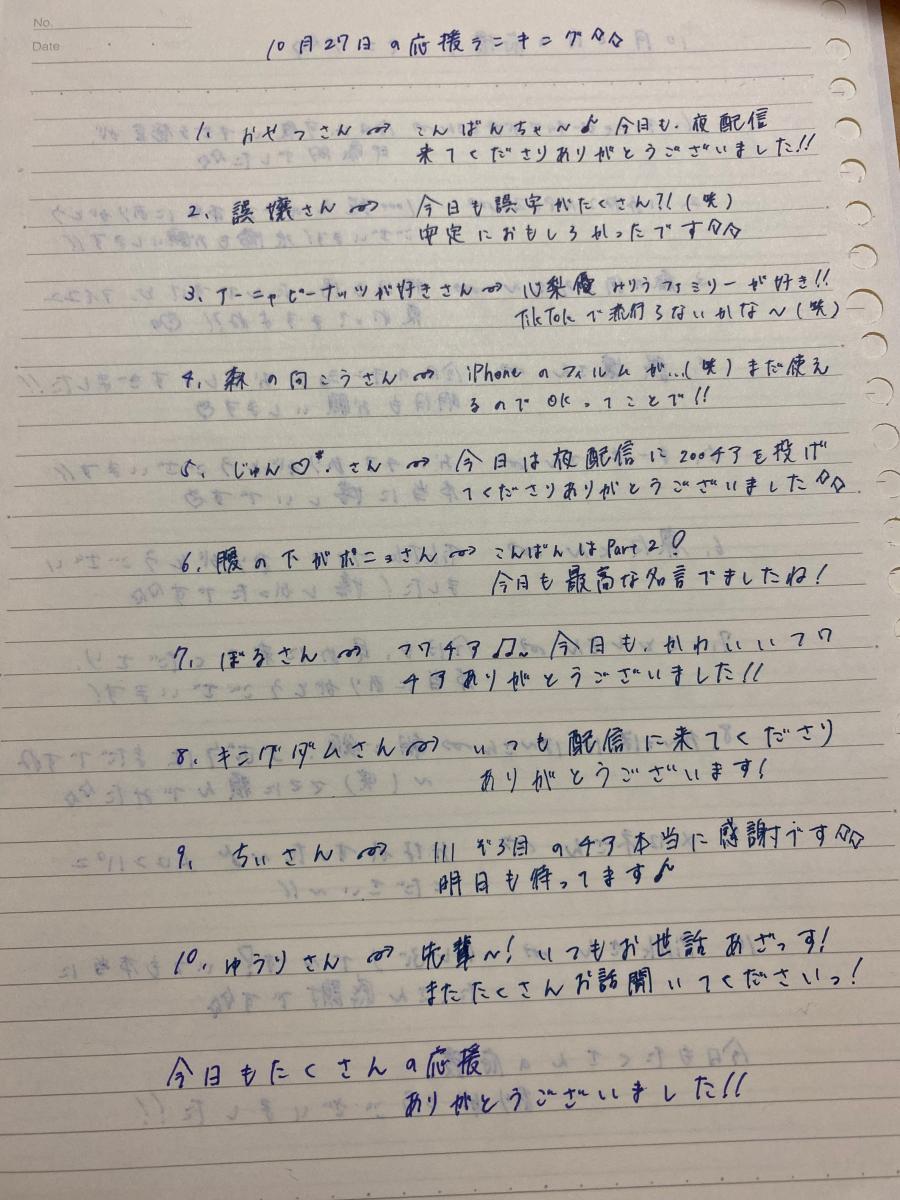 No.
Date
10月27日の応援ランキング☆☆
1. おやつさん⇝ こんばんちゃ〜♪ 今日も、夜配信
来てくださりありがとうございました!!
2. 誤嬢さん⇝ 今日も誤字がたくさん?!(笑)
安定におもしろかったです☆☆
3. アーニャピーナッツが好きさん⇝ 心梨優みりうファミリーが好き!!
TikTokで流行らないかな〜(笑)
4. 森の向こうさん⇝ iPhoneのフィルムが...(笑)まだ使え
るのでOKってことで!!
5. じゅん♡*.さん⇝ 今日は夜配信に200チアを投げ
てくださりありがとうございました☆☆
6. 腹の下がポニョさん⇝ こんばんはPart2?
今日も最高な名言でましたね!
7. ぽるさん⇝ フワチア♫〜 今日もかわいいフワ
チアありがとうございました!!
8. キングダムさん⇝ いつも配信に来てくださり
ありがとうございます!
9. ちぃさん⇝ 111ぞろ目のチア本当に感謝です☆☆
明日も待ってます♪
10. ゆうりさん⇝ 先輩〜! いつもお世話あざっす!
またたくさんお話聞いてくださいっ!
今日もたくさんの応援
ありがとうございました!!